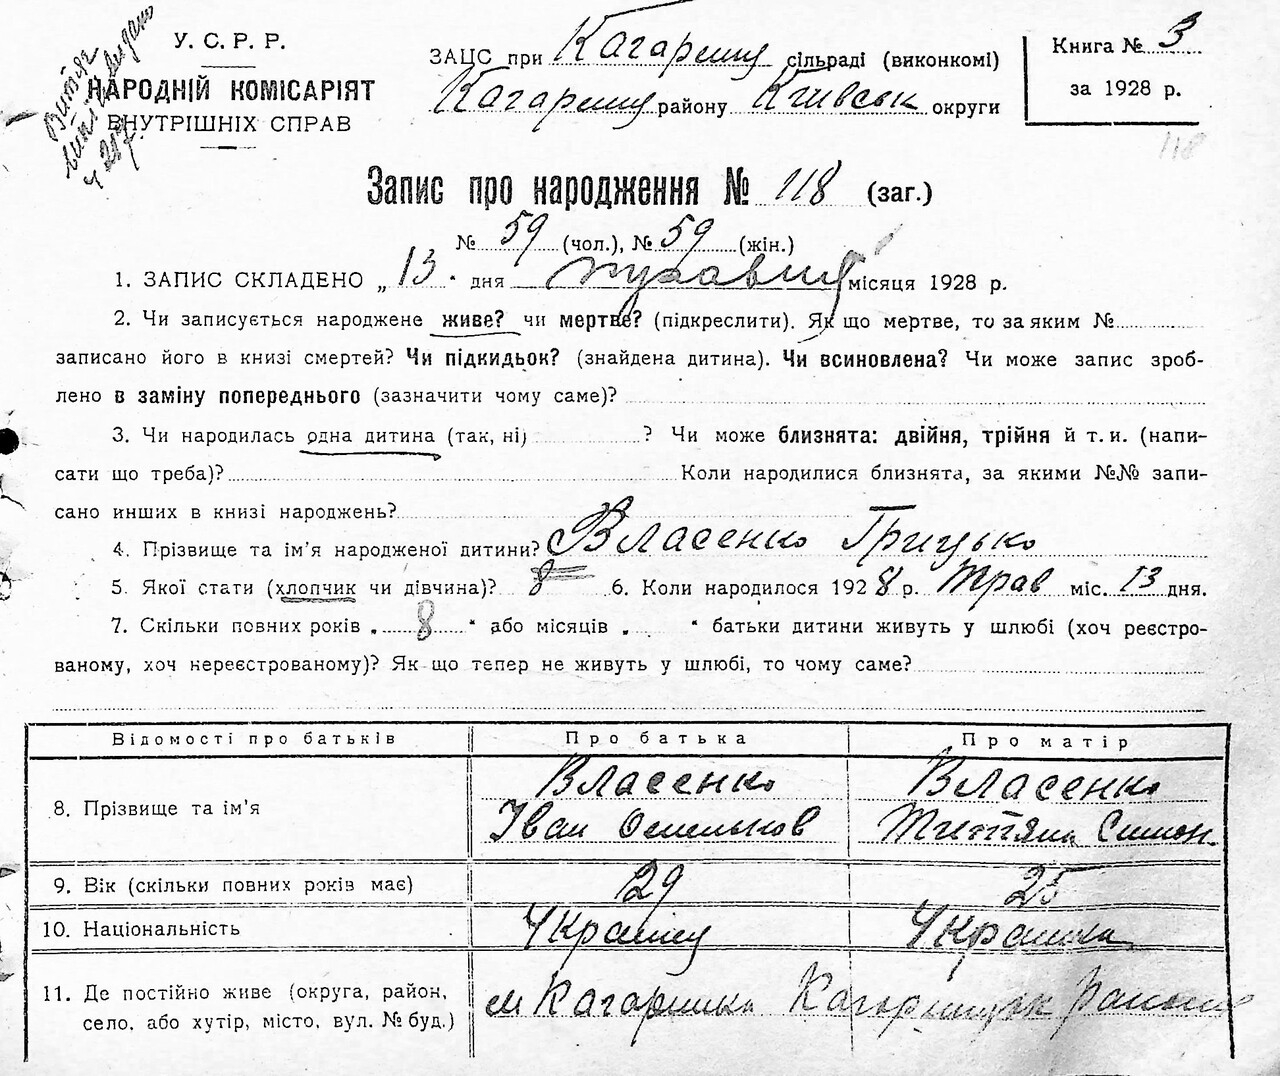 У. С. Р. Р.
НАРОДНІЙ КОМІСАРІЯТ
ВНУТРІШНІХ СПРАВ
ЗАЦС при Кагарлиц сільраді (виконкомі)
Кагарлиц району Київськ округи
Книга № 3
за 1928 р.
118
Запис про народження № 118 (заг.)
№ 59 (чол.), № 59 (жін.)
1. ЗАПИС СКЛАДЕНО „ 13 " дня місяця 1928 р.
2. Чи записується народжене живе? чи мертве? (підкреслити). Як що мертве, то за яким №
записано його в книзі смертей? Чи підкидьок? (знайдена дитина). Чи всиновлена? Чи може запис зроб-
лено в заміну попереднього (зазначити чому саме)?
3. Чи народилась одна дитина (так, ні) ? Чи може близнята: двійня, трійня й т. и. (напи-
сати що треба)? Коли народилися близнята, за якими №№ запи-
сано инших в книзі народжень?
4. Прізвище та ім'я народженої дитини? Власенко Грицько
5. Якої стати (хлопчик чи дівчина)? 6. Коли народилося 1928 р. Трав міс. 13 дня.
7. Скільки повних років „ 8 " або місяців „ " батьки дитини живуть у шлюбі (хоч реєстро-
ваному, хоч нереєстрованому)? Як що тепер не живуть у шлюбі, то чому саме?
Відомості про батьків Про батька Про матір
8. Прізвище та ім'я Власенко Власенко
Іван Омельков Титяна Симон.
9. Вік (скільки повних років має) 29 25
10. Національність Україн Українка
11. Де постійно живе (округа, район,
село, або хутір, місто, вул. № буд.) м Кагарлик Кагарлицьк Району